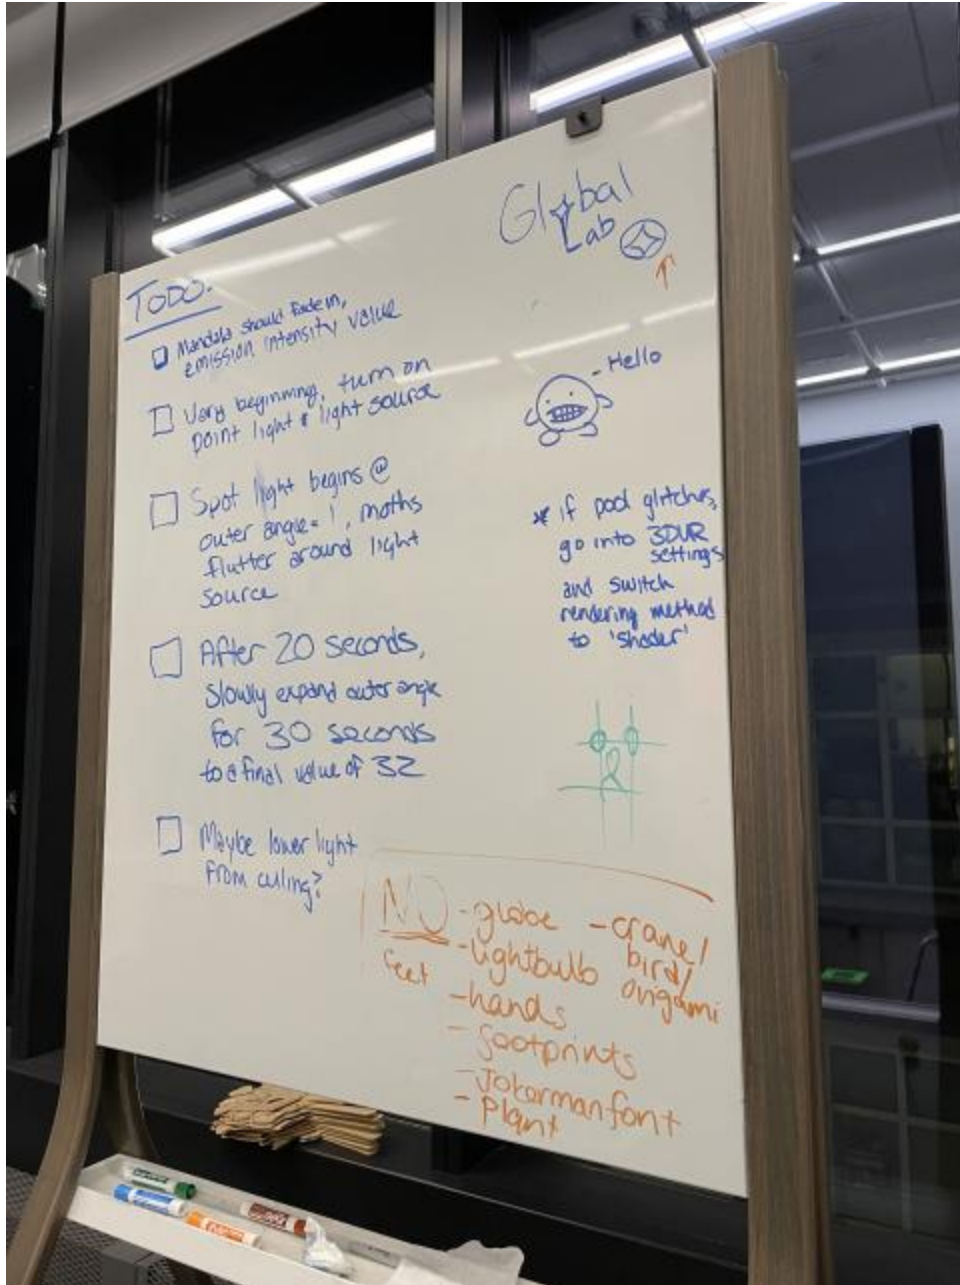 Global
Lab
TODO:
Mandala should fade in,
emission intensity value
Very beginning, turn on
point light & light source
Spot light begins @
outer angle = 1, moths
flutter around light
source
After 20 seconds,
slowly expand outer angle
for 30 seconds
to a final value of 32
Maybe lower light
from ceiling?
- Hello
* if pool glitches,
go into 3DUR
settings
and switch
rendering method
to 'shader'
NO
feet
- globe
- lightbulb
- hands
- footprints
- Jokerman font
- Plant
- crane/
bird/
origami